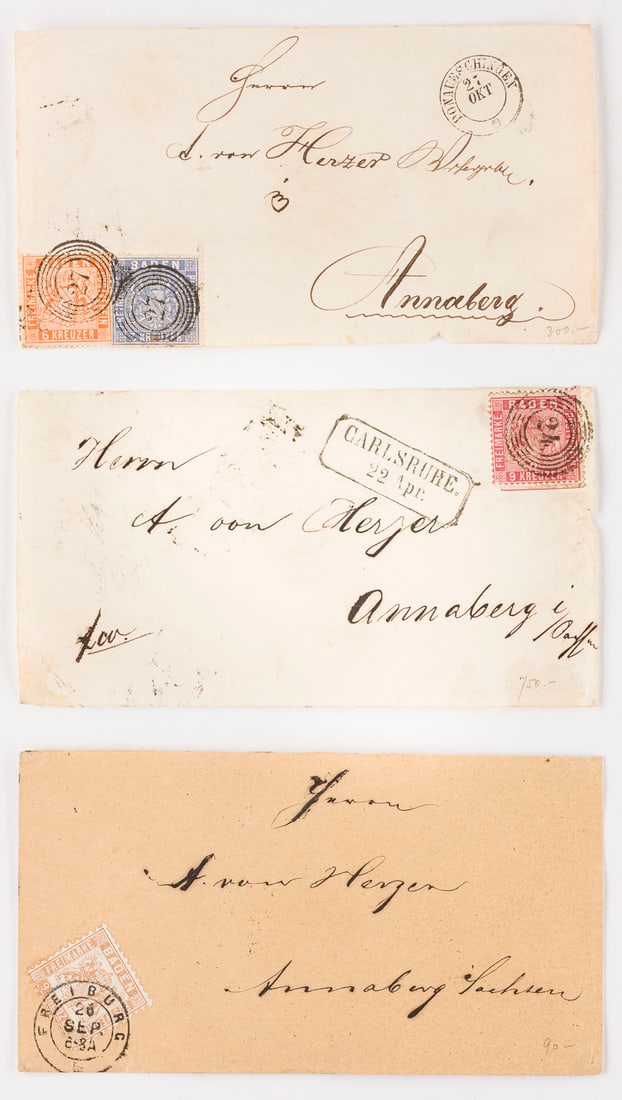 Herrn
DONAUESCHINGEN
27
OKT
A. von Herzer
in
Annaberg.
BADEN
FREIMARKE
6 KREUZER
27
27
300.-
Herrn
CARLSRUHE.
22 Apr.
BADEN
FREIMARKE
9 KREUZER
24
A. von Herzer
Annaberg i/
fco.
750.-
Herrn
A. von Herzer
Annaberg Sachsen
FREIMARKE
BADEN
FREIBURG
26
SEP.
90-